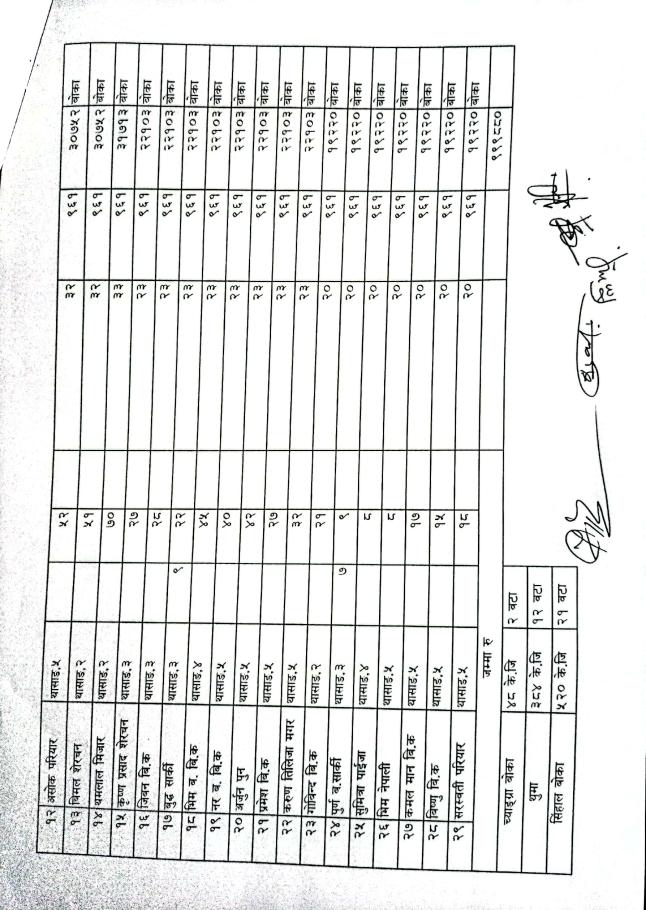 १२ असोक परियार थासाङ,५ ५२ ३२ ९६१ ३०७५२ बोका
१३ बिमल शेरचन थासाङ,२ ५१ ३२ ९६१ ३०७५२ बोका
१४ यमलाल मिजार थासाङ,२ ७० ३३ ९६१ ३१७१३ बोका
१५ कृष्ण प्रसाद शेरचन थासाङ,३ २७ २३ ९६१ २२१०३ बोका
१६ जिबन बि.क थासाङ,३ २८ २३ ९६१ २२१०३ बोका
१७ बुद्ध सार्की थासाङ,३ ९ २२ २३ ९६१ २२१०३ बोका
१८ भिम ब. बि.क थासाङ,४ ४५ २३ ९६१ २२१०३ बोका
१९ नर ब. बि.क थासाङ,५ ४० २३ ९६१ २२१०३ बोका
२० अर्जुन पुन थासाङ,५ ४२ २३ ९६१ २२१०३ बोका
२१ प्रमेश बि.क थासाङ,५ २७ २३ ९६१ २२१०३ बोका
२२ करुण तिलिजा मगर थासाङ,५ ३२ २३ ९६१ २२१०३ बोका
२३ गोविन्द बि.क थासाङ,२ २१ २३ ९६१ २२१०३ बोका
२४ पुर्ण ब.सार्की थासाङ,३ ७ ९ २० ९६१ १९२२० बोका
२५ सुमित्रा पाईजा थासाङ,४ ८ २० ९६१ १९२२० बोका
२६ भिम नेपाली थासाङ,५ ८ २० ९६१ १९२२० बोका
२७ कमल मान बि.क थासाङ,५ १७ २० ९६१ १९२२० बोका
२८ बिष्णु बि.क थासाङ,५ १५ २० ९६१ १९२२० बोका
२९ सरस्वती परियार थासाङ,५ १८ २० ९६१ १९२२० बोका
जम्मा रु ९९९८२०
च्याङ्ग्रा बोका ४८ के.जि २ वटा
थुमा ३८४ के.जि १२ वटा
सिंहाल बोका ५२० के.जि २१ वटा